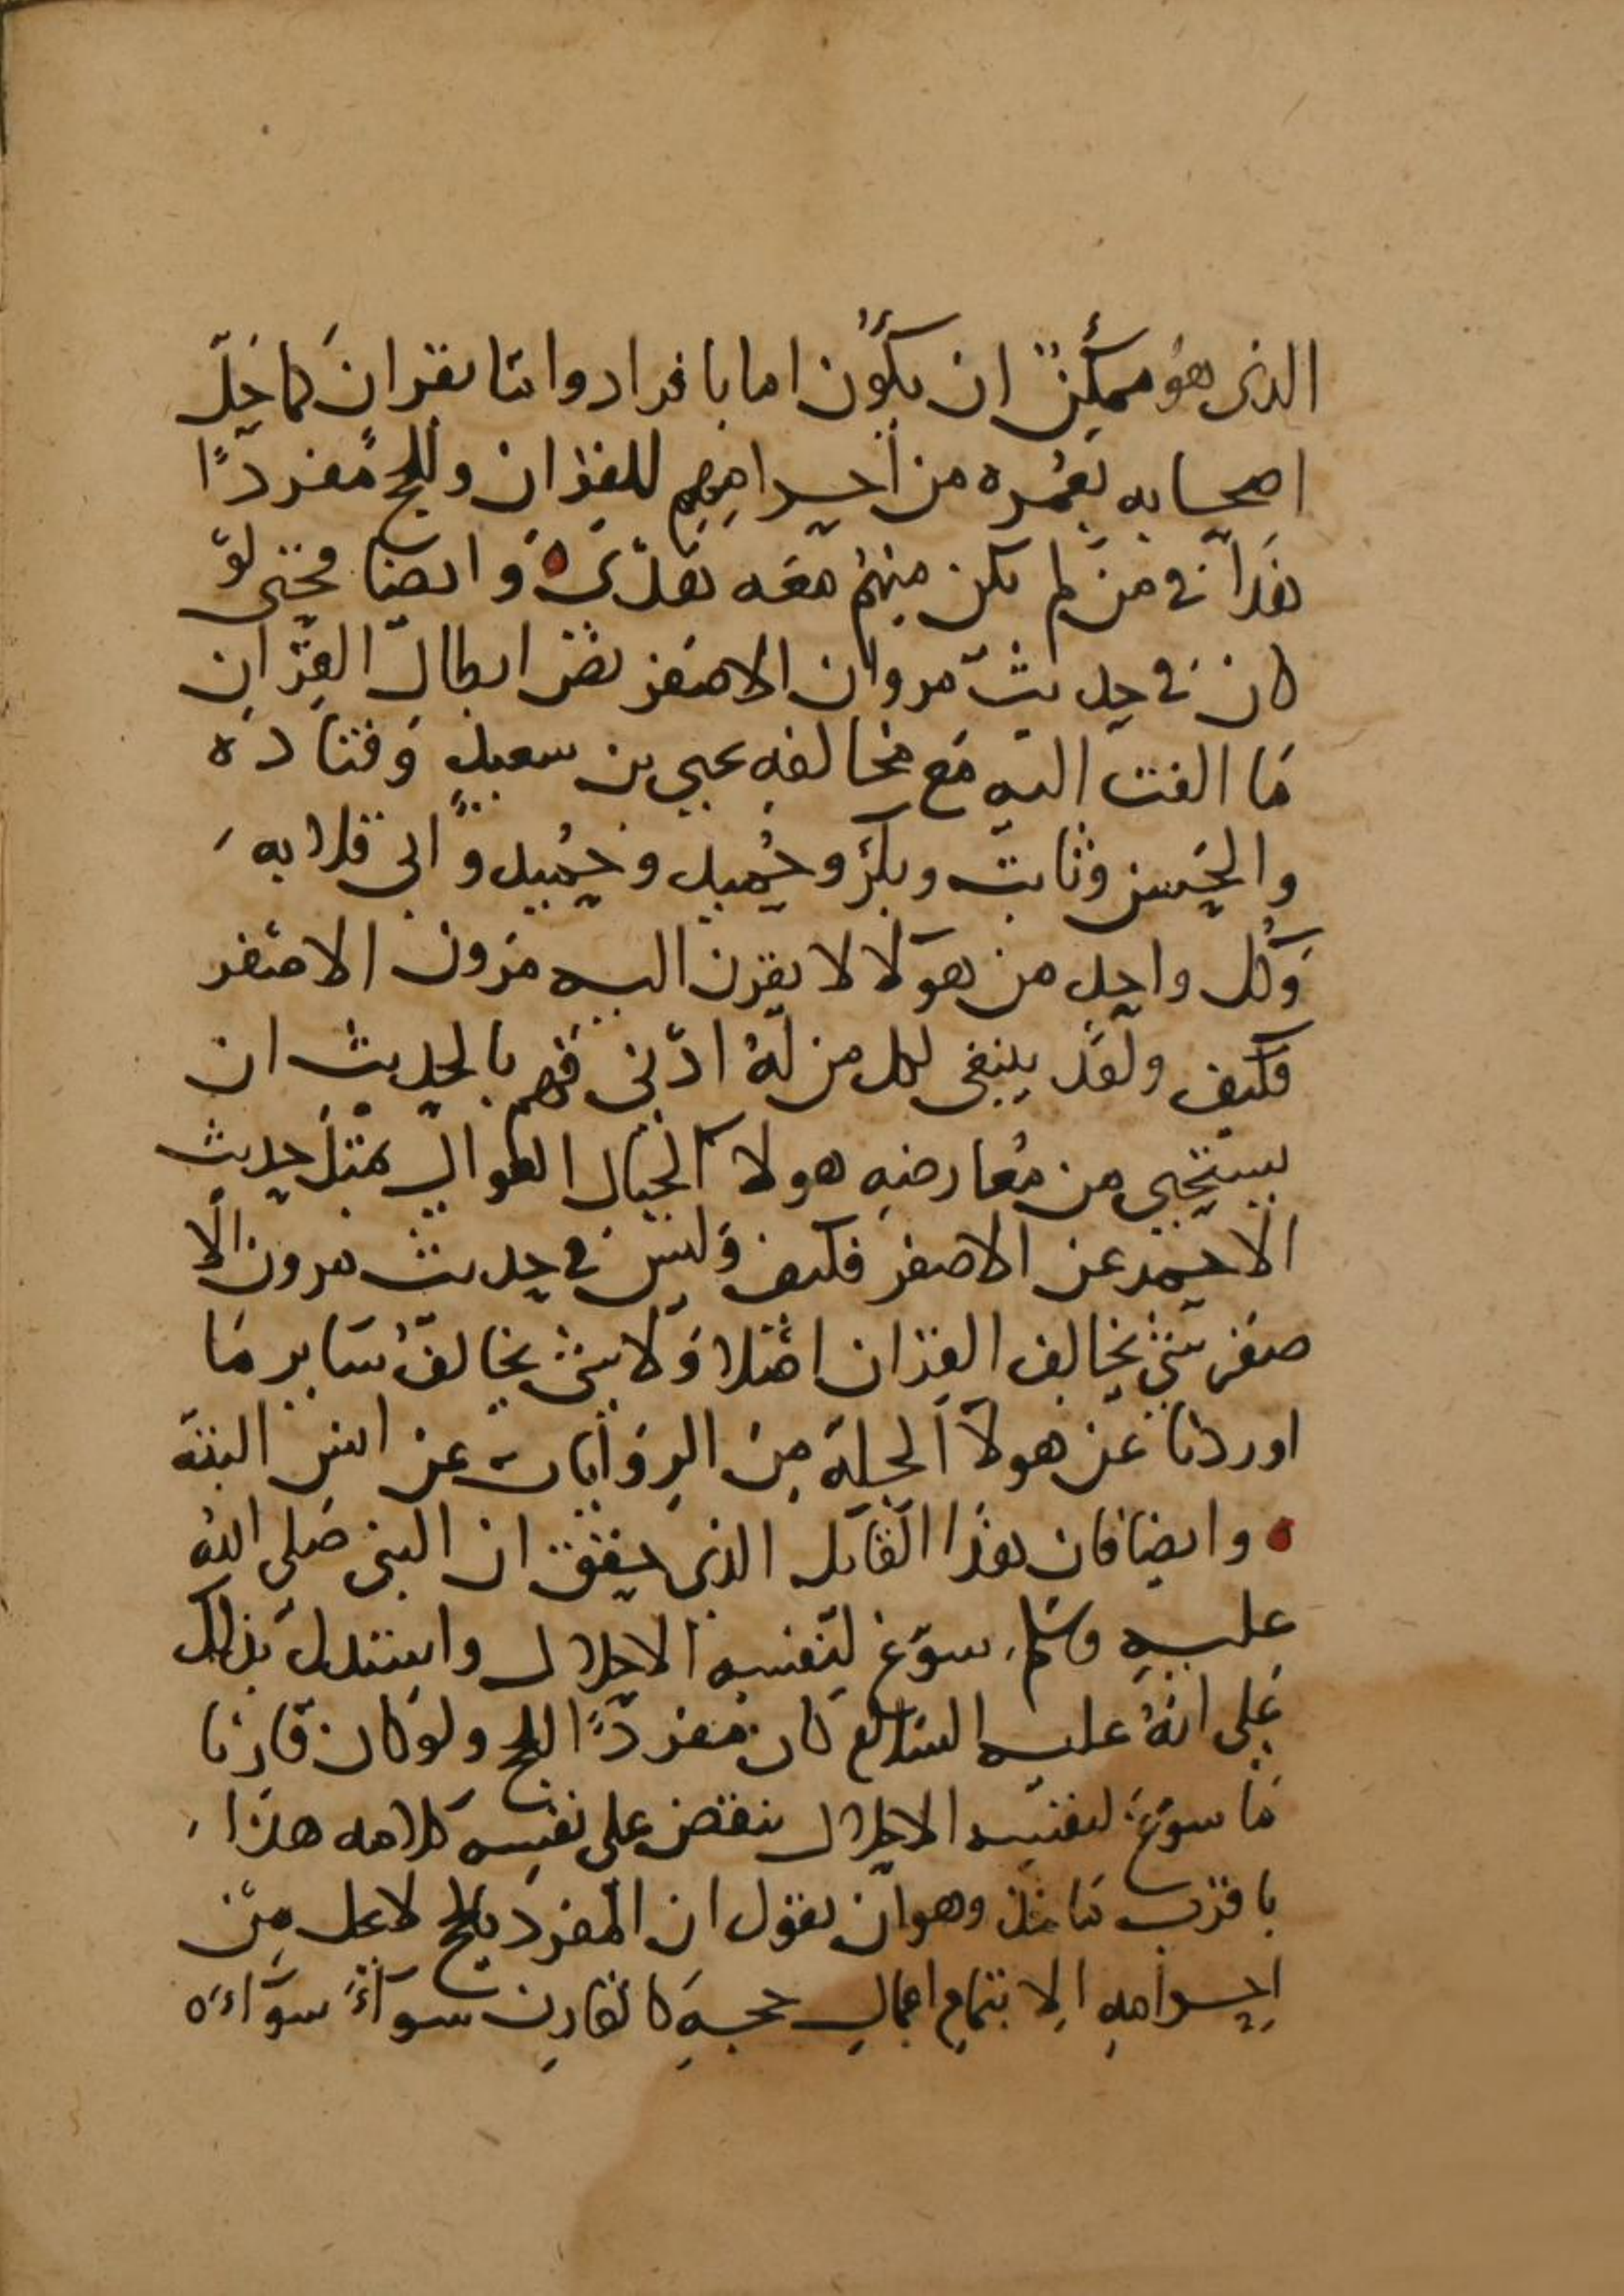 الذى هو ممكن ان يكون اما بافراد واما بقران كما حل
اصحابه بعمره من احرامهم للقران وللحج مفردا
هذا في من لم يكن منهم معه هدى وايضا فحتى لو
كان في حديث مروان الاصفر نص ابطال القران
ما التفت اليه مع مخالفه يحيى بن سعيد وقتاده
والحسن وثابت وبكر وحميد وحميد وابى قلابه
وكل واحد من هولا لا يقرن اليه مرون الاصفر
فكيف ولقد ينبغى لكل من له ادنى فهم بالحديث ان
يستحيى من معارضه هولا الجبال الطوال بمثل حديث
الاحمر عن الاصفر فكيف وليس في حديث مرون الا
صفر شى يخالف القران اصلا ولا شى يخالف ساير ما
اوردنا عن هولا الجلة من الروايات عن انس البتة
وايضا فان هذا القايل الذى حقق ان النبى صلى الله
عليه وسلم سوغ لنفسه الاحلال واستدل بذلك
على انه عليه السلام كان مفردا للحج ولو كان قارنا
ما سوغ لنفسه الاحلال ينقض على نفسه كلامه هذا
باقرب تامل وهو ان يقول ان المفرد بالحج لا يحل من
احرامه الا بتمام اعمال حجه كالقارن سوآء سوآء